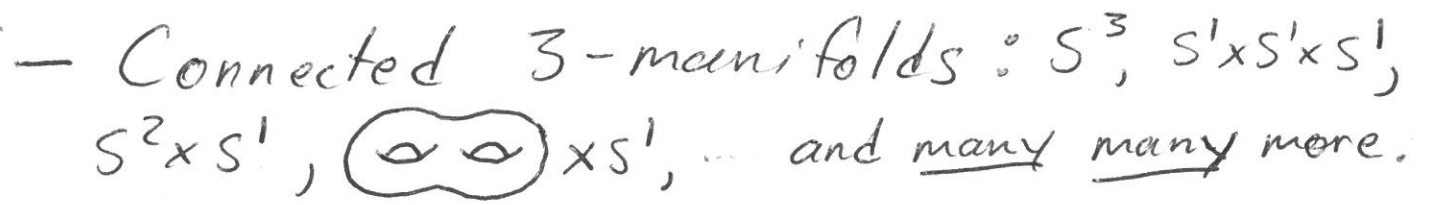 - Connected 3-manifolds: S³, S¹×S¹×S¹,
S²×S¹, ×S¹, ... and many many more.